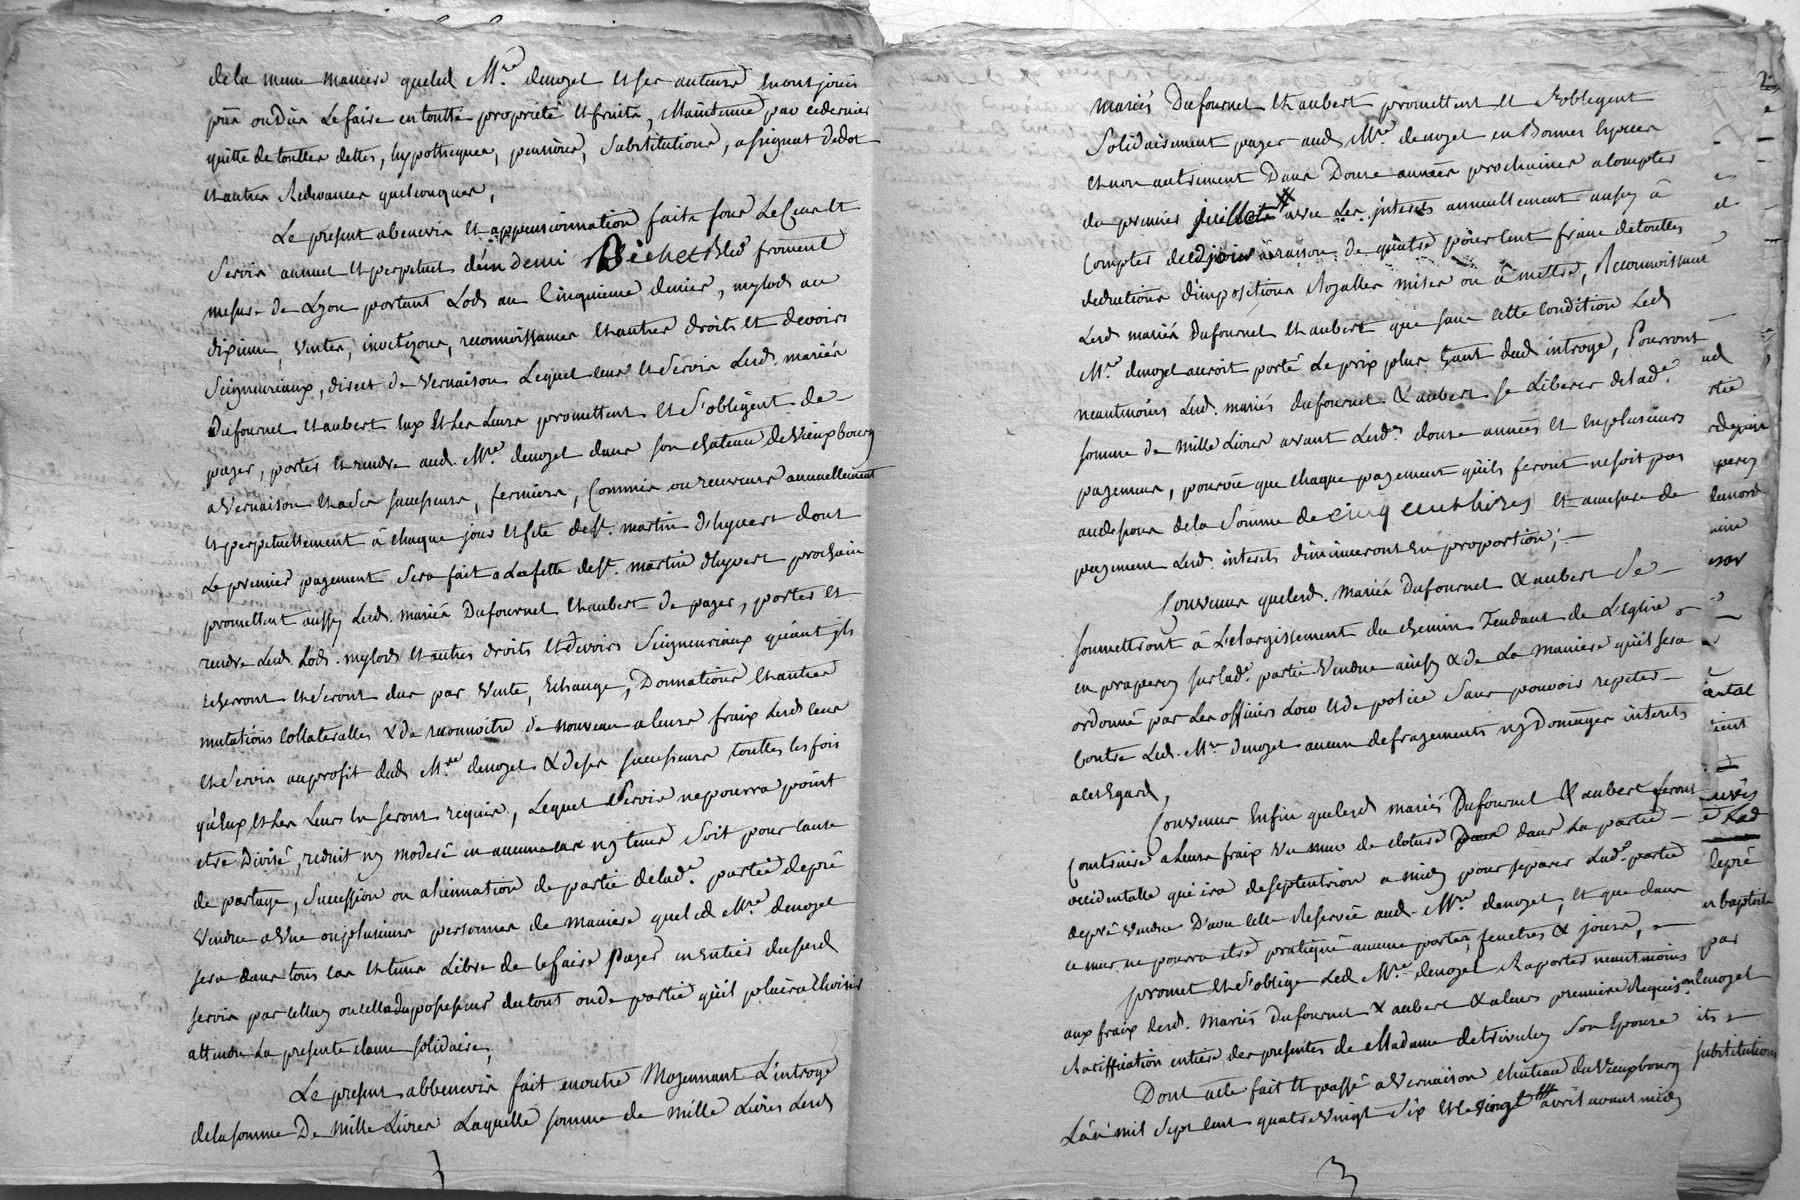 de la meme maniere queled. Mre. denozel et ses auteurs en ont jouis
pûs ou dûs le faire en toutte proprieté et fruits, Maintenue par ce dernier
quitte de touttes dettes, hypotheques, pensions, substitutions, assignat de dot
et autres Redevances quelconques,
Le present abenevis et appensionnation faits sous Le Cens et
Servis annuel et perpetuel d'un demi Bichet Bled froment
mesure de Lyon portant Lods au Cinquieme denier, mylods au
dixieme, ventes, investizons, reconnoissances et autres droits et devoirs
Seigneuriaux, direct de Vernaison Lequel cens et Servis Lesd. mariés
Dufournel et aubert eux et Les Leurs promettent et s'obligent de
payer, porter et rendre aud. Mre. denozel dans son chateau de Vieuxbourg
a Vernaison et a Ses successeurs, fermiers, Commis ou receveurs annuellement
et perpetuellement à chaque jour et fete de St. martin d'hyvert dont
Le premier payement Sera fait a La fette de St. martin d'hyvert prochain
promettent aussy Lesd. mariés Dufournel et aubert de payer, porter et
rendre Lesd. Lods. mylods et autres droits et devoirs Seigneuriaux quant ils
Echerront et Seront dus par Vente, Echange, Donnations et autres
mutations Collateralles & de reconnoitre de nouveau a leurs fraix Lesd. Cens
et Servis au profit dud. Mre. denozel & de ses successeurs touttes les fois
qu'eux et Les Leurs en seront requis, Lequel Servis ne pourra point
etre Divisé, reduit ny moderé en aucuns cas ny tems soit pour cause
de partage, succession ou alienation de partie de lade. partie de pré
Vendue a Une ou plusieurs personnes de maniere queled. Mre. denozel
sera dans tous cas et tems Libre de se faire Payer en Entier dud.
servis par celluy ou cella du possesseur du tout ou de partie qu'il plaira choisir
attendu La presente clause solidaire,
Le present abbenevis fait en outre Moyennant L'introge
de la somme De Mille Livres Laquelle somme de Mille Livres Lesd.
3
Mariés Dufournel et aubert promettent et s'obligent
Solidairement payer aud. Mre. denozel en Bonnes Especes
et non autrement Dans Douze années prochaines a compter
du premier juillet avec Les interets annuellement aussy à
Compter dud. jour à raison de quatre pour Cent franc de touttes
deductions d'impositions Royalles mises ou à mettre, Reconnoissant
Lesd. mariés Dufournel et aubert que sans cette condition Led.
Mre. denozel auroit porté Le prix plus haut dud. introge, Pourront
neantmoins Lesd. mariés dufournel & aubert se Liberer de lade.
somme de Mille Livres avant Lesdes. douze années et en plusieurs
payemens, pourvû que chaque payement qu'ils feront ne soit pas
au dessous de la Somme de cinq cent livres et a mesure de
payement Lesd. interets diminueront En proportion; —
Convenus quelesd. Mariés Dufournel & aubert se
soumettront à L'elargissement du chemin Tendant de L'Eglise
en prapercy sur lade. partie Vendue ainsy & de La Maniere qu'il sera
ordonné par Les officiers Lors et de police Sans pouvoir repeter
Contre Led. Mre. denozel aucuns defrayements ny Domages interets
a cet Egard,
Convenus Enfin quelesd. mariés Dufournel & aubert feront
Construire a leurs fraix Un mur de cloture dans La partie
occidentalle qui ira de Septentrion a midy pour separer Lade. partie
de pré Vendue D'avec celle Reservée aud. Mre. denozel, et que dans
ce mur ne pourra etre pratiqué aucune portes, fenetres & jours,
promet et s'oblige Led. Mre. denozel Raporter neantmoins
aux fraix desd. Mariés Dufournel & aubert & a leurs premiere Requisition
Ratiffication entiere des presentes de Madame de trivulcy Son Epouse
Dont acte fait et passé a Vernaison chateau du Vieuxbourg
L'an mil Sept Cent quatre Vingt Six et Le Vingt avril avant midy
3